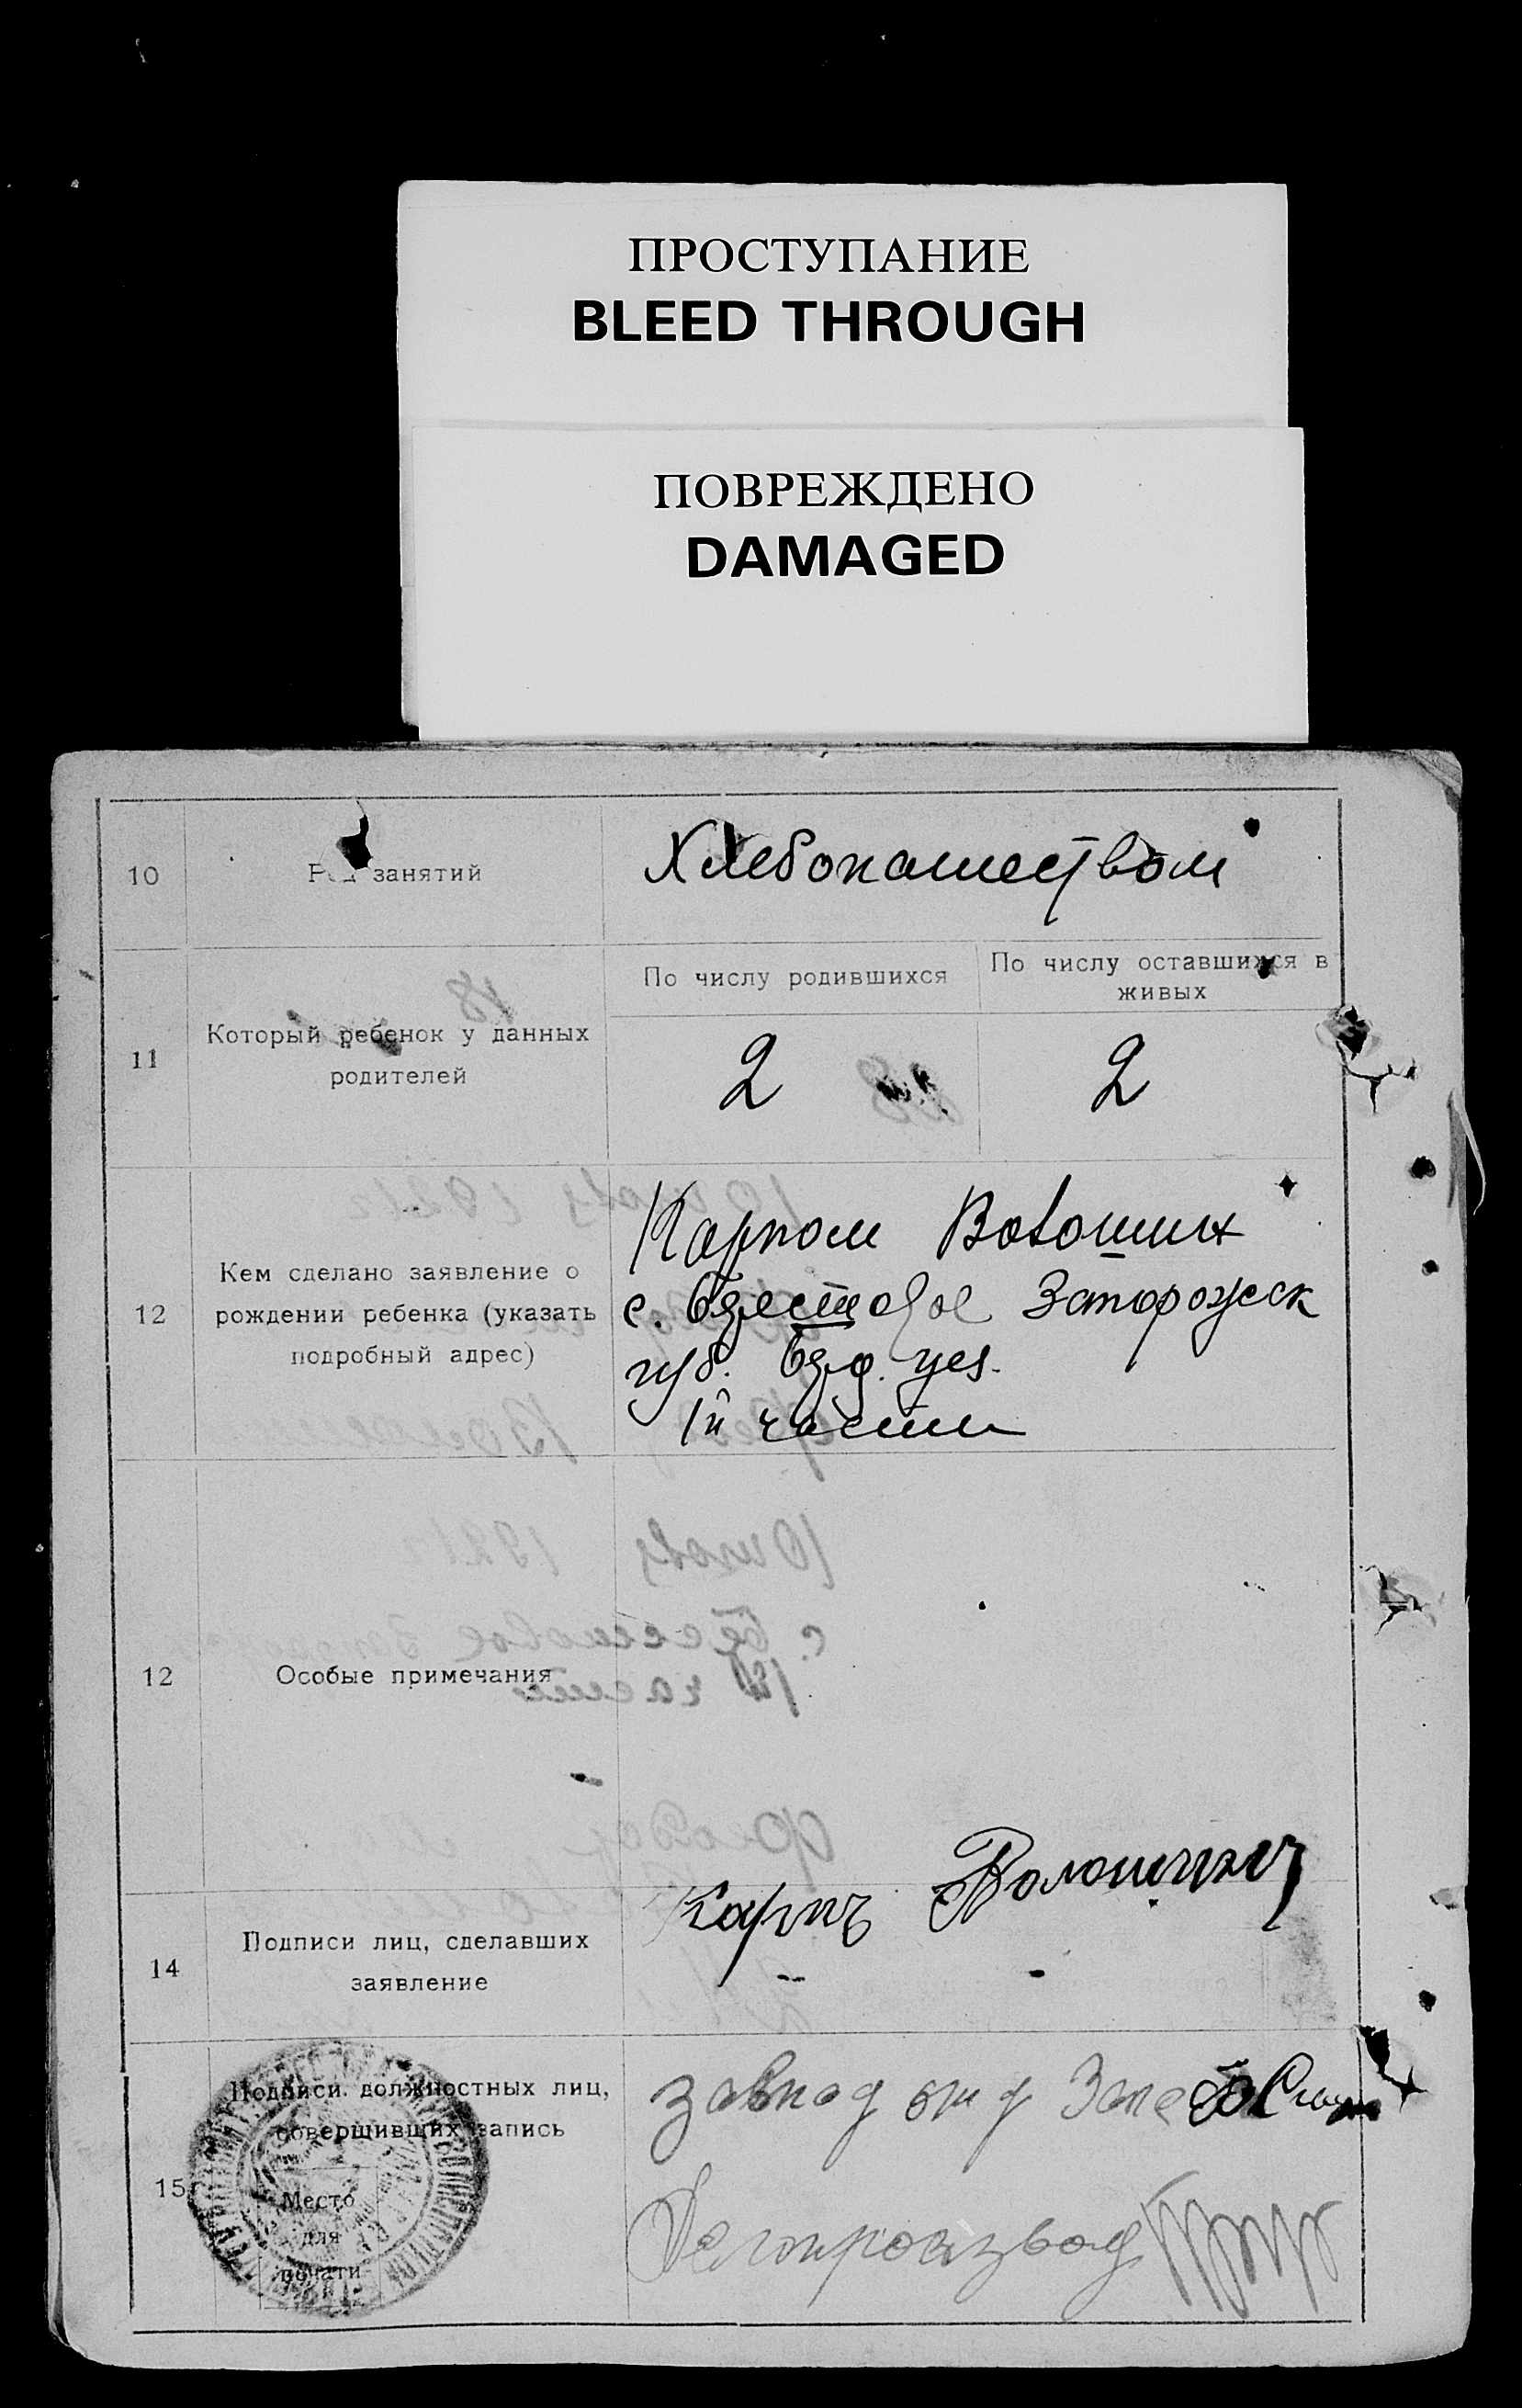 ПРОСТУПАНИЕ
BLEED THROUGH
ПОВРЕЖДЕНО
DAMAGED
10
Род занятий
Хлебопашеством
11
Который ребенок у данных
родителей
По числу родившихся
По числу оставшихся в
живых
2
2
12
Кем сделано заявление о
рождении ребенка (указать
подробный адрес)
Карпом Волошин
с. Запорожск
губ. уез.
1й части
12
Особые примечания
14
Подписи лиц, сделавших
заявление
Карпъ Волошин
15
Подписи должностных лиц,
совершивших запись
Место
для
печати
Завпод
Делопроизвод